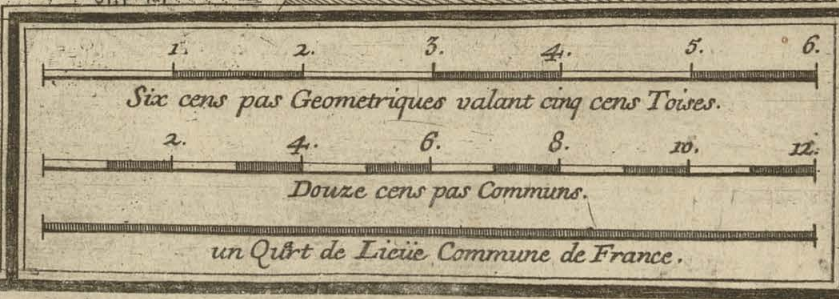 1. 2. 3. 4. 5. 6.
Six cens pas Geometriques valant cinq cens Toises.
2. 4. 6. 8. 10. 12.
Douze cens pas Communs.
un Qűrt de Lieüe Commune de France.